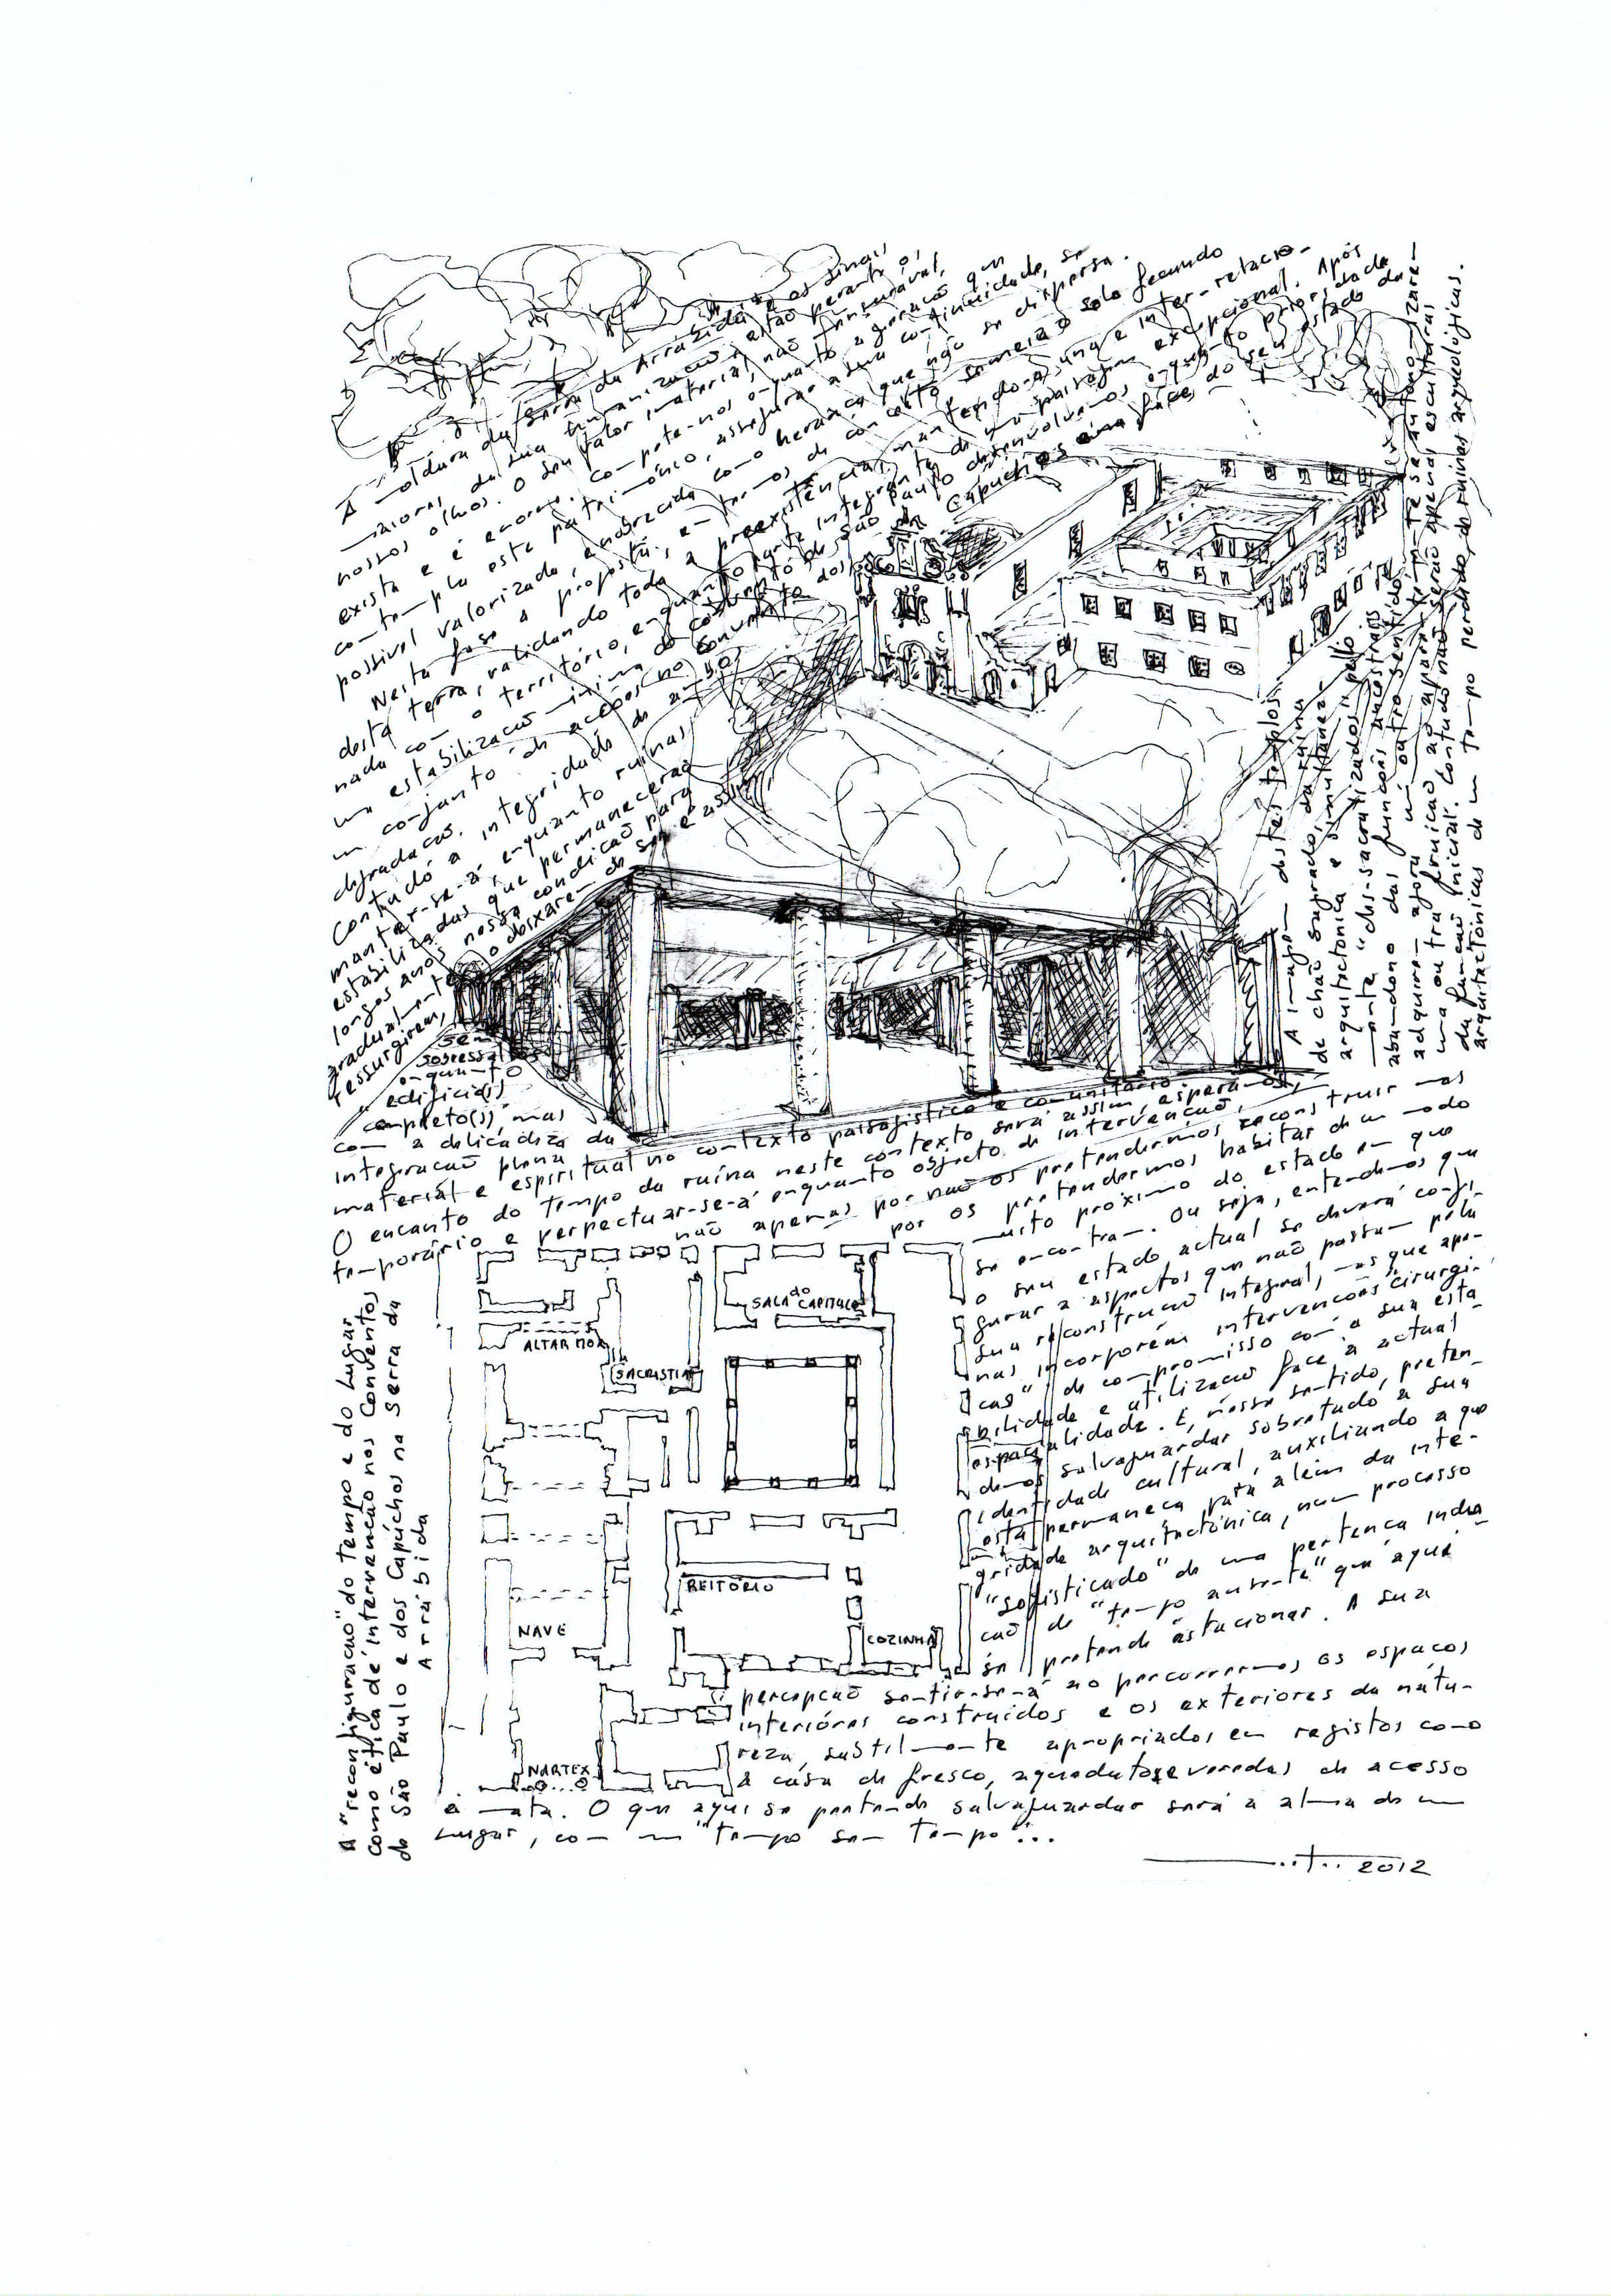 A "reconfiguração" do tempo e do Lugar
como ética de intervenção nos Conventos
de São Paulo e dos Capuchos na Serra da
Arrábida
A moldura da Serra da Arrábida e os sinais
maiores da sua humanização, estão perante os
nossos olhos. O seu valor material, não mensurável,
existe e é enorme. Compete-nos enquanto a geração que
contempla este património, assegurar a sua continuidade, se
possível valorizada, enobrecida como herança que não se dispersa.
Nesta fase a proposta, em termos de conceito semeia o solo fecundo
desta terra, validando toda a preexistência, mantendo-a, una e inter-relacio-
nada com o território, enquanto parte integrante de uma paisagem excepcional. Após
uma estabilização mínima do convento de São Paulo desenvolvemos enquanto prioridade
um conjunto de acções no Convento dos Capuchos em face do seu estado de
degradação.
Contudo a integridade de ambos
manter-se-á, enquanto ruínas
estabilizadas que permanecerão
longos anos nessa condição para
gradualmente o deixarem de ser e assim
ressurgirem,
sem
sobressaltos
enquanto
edifício(s)
completo(s), mas
com a delicadeza da
integração plena no contexto paisagístico e comunitário
material e espiritual
O encanto do tempo da ruína neste contexto será assim, esperamos,
temporário e perpectuar-se-á enquanto objecto de intervenção,
não apenas por não os pretendermos reconstruir mas
por os pretendermos habitar de um modo
muito próximo do estado em que
se encontram. Ou seja, entendemos que
o seu estado actual se deverá confi-
gurar a aspectos que não passam pela
sua reconstrução integral, mas que ape-
nas incorporem intervenções "cirurgi-
cas" de compromisso com a sua esta-
bilidade e utilização face à actual
espacialidade. E, nesse sentido, preten-
demos salvaguardar sobretudo a sua
identidade cultural, auxiliando a que
esta permaneça para além da inte-
gridade arquitectónica, num processo
"sofisticado" de uma pertença indica-
ção de "tempo ausente" que aqui
se pretende estacionar. A sua
percepção sentir-se-á ao percorrermos os espaços
interiores construídos e os exteriores da natu-
reza, subtilmente apropriados em registos como
a casa de fresco, aquedutos e veredas de acesso
à mata. O que aqui se pretende salvaguardar será a alma de um
Lugar, com um "tempo sem tempo"...
A imagem destes templos
de chão sagrado, da ruína
arquitectónica e simultanea-
mente "des-sacralizados" pelo
abandono das funções ancestrais
adquirem agora um outro sentido
uma outra fruição ao aparen-
da função inicial. Contudo não serão apenas esculturas
arquitectónicas de um tempo perdido, de ruínas arqueológicas.
SALA do CAPITULO
ALTAR MOR
SACRISTIA
REITÓRIO
NAVE
COZINHA
NARTEX
2012